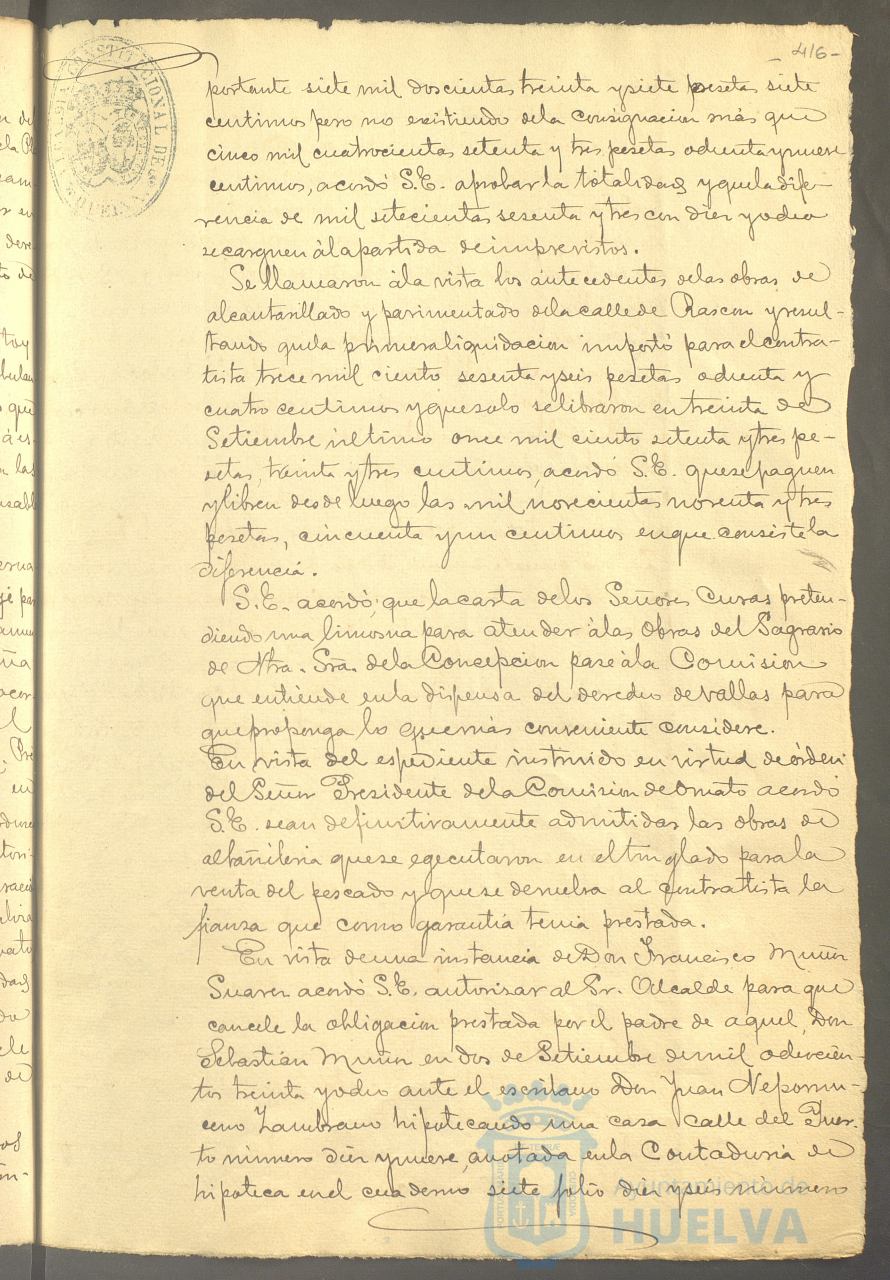 -416-
ALCALDIA CONSTITUCIONAL DE HUELVA
portante siete mil doscientas treinta y siete pesetas siete
centimos pero no existiendo dela consignacion más que
cinco mil cuatrocientas setenta y tres pesetas ochenta y nueve
centimos, acordó S.E. aprobar la totalidad y que la dife-
rencia de mil setecientas sesenta y tres con diez y ocho
se carguen á la partida de imprevistos.
Se llamaron á la vista los antecedentes delas obras de
alcantarillado y pavimentado dela calle de Rascon y resul-
tando que la primera liquidacion importó para el contra-
tista trece mil ciento sesenta y seis pesetas ochenta y
cuatro centimos y que solo se libraron en treinta de
Setiembre último once mil ciento setenta y tres pe-
setas, treinta y tres centimos, acordó S.E. que se paguen
y libren desde luego las mil novecientas noventa y tres
pesetas, cincuenta y un centimos en que consiste la
diferencia.
S.E. acordó, que la carta delos Señores Curas preten-
diendo una limosna para atender á las obras del Sagrario
de Ntra. Sra. dela Concepcion pase á la Comision
que entiende en la dispensa del derecho de vallas para
que proponga lo que más conveniente considere.
En vista del espediente instruido en virtud de órden
del Señor Presidente dela Comision de Ornato acordó
S.E. sean definitivamente admitidas las obras de
albañileria que se egecutaron en el tinglado para la
venta del pescado y que se devuelva al contratista la
fianza que como garantía tenia prestada.
En vista de una instancia de Don Francisco Muñoz
Suarez acordó S.E. autorizar al Sr. Alcalde para que
cancele la obligacion prestada por el padre de aquel, Don
Sebastián Muñoz en dos de Setiembre de mil ochocien-
tos treinta y ocho ante el escribano Don Juan Nepomu-
ceno Zambrano hipotecando una casa calle del Puer-
to número diez y nueve, anotada en la Contaduria de
hipoteca en el cuaderno siete folio diez y seis número
Ayuntamiento de
HUELVA